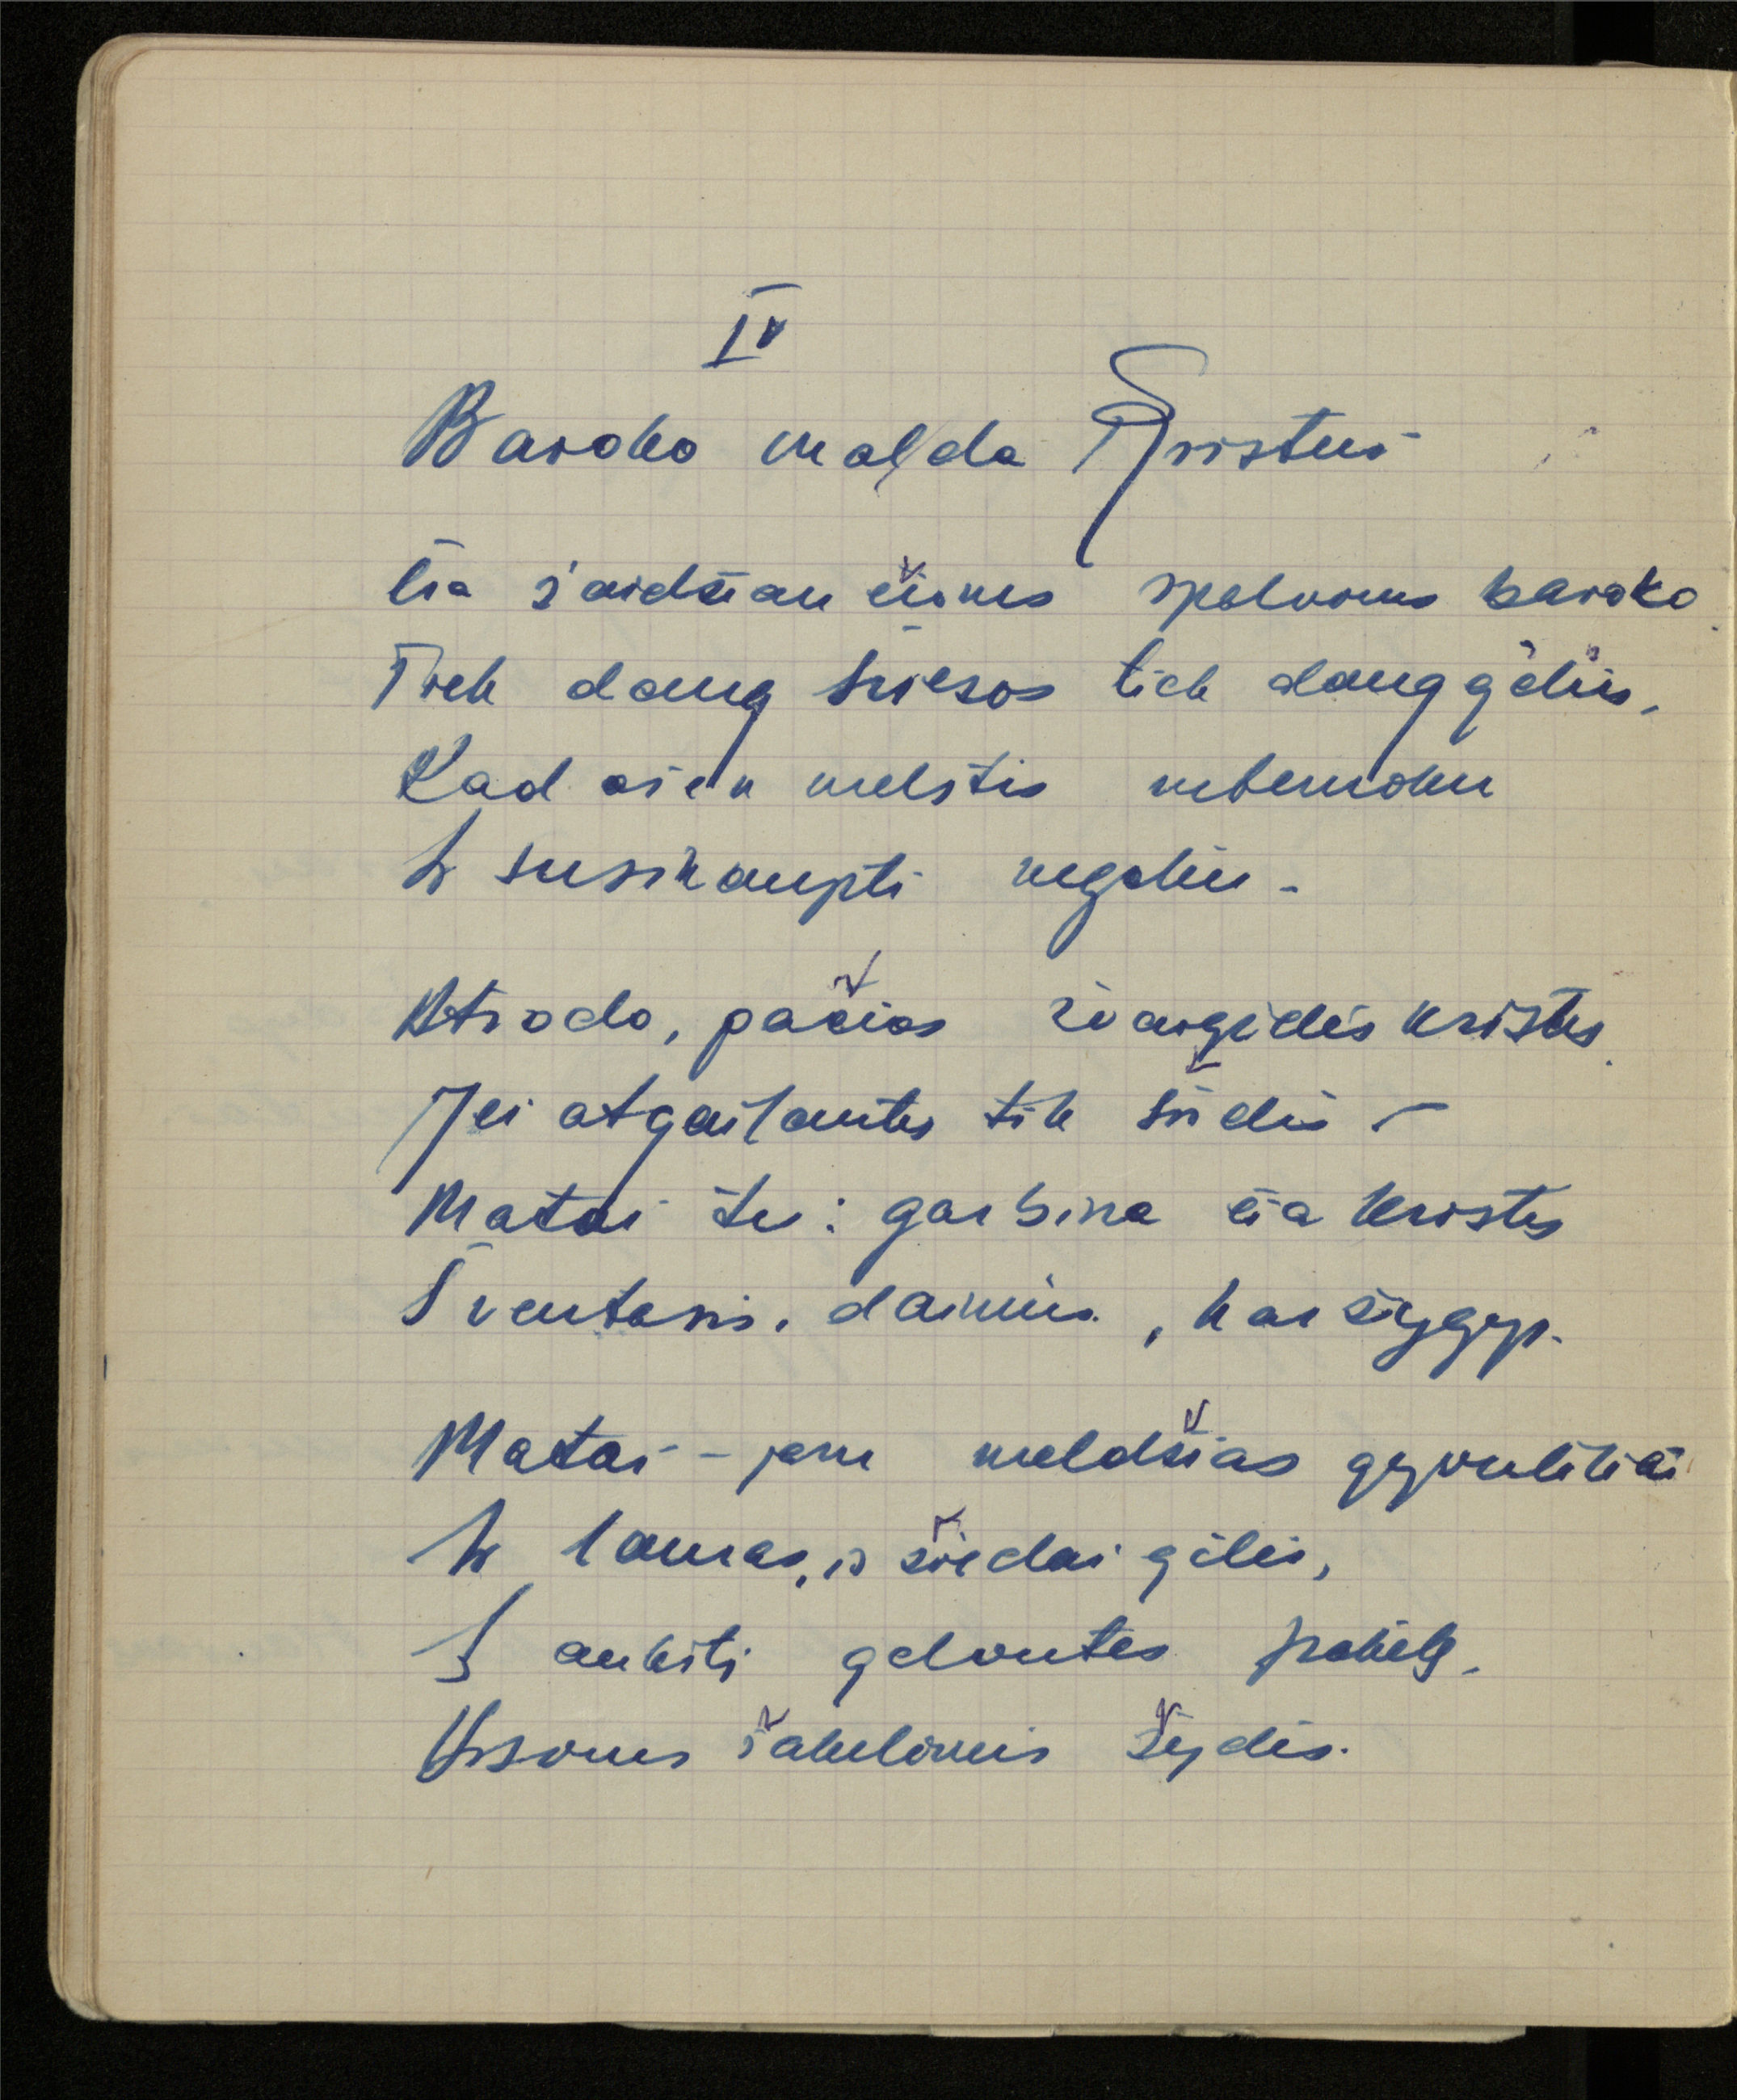 IV
Baroko malda Kristui
Čia žaidžiančioms spalvoms baroko
Tiek daug šviesos tiek daug gėlių,
Kad aš čia melstis nebemoku
Ir susikaupti negaliu.
Atrodo, pačios žvaigždės kristų
Jei atgailautų tik širdis –
Matai tu: garbina čia Kristų
Šventasis, dainius, karžygys.
Matai – jam meldžias gyvulėliai
Ir lauras, ir žiedai gėlių,
Į aukštį galvutes pakėlę
Visoms šakelėmis